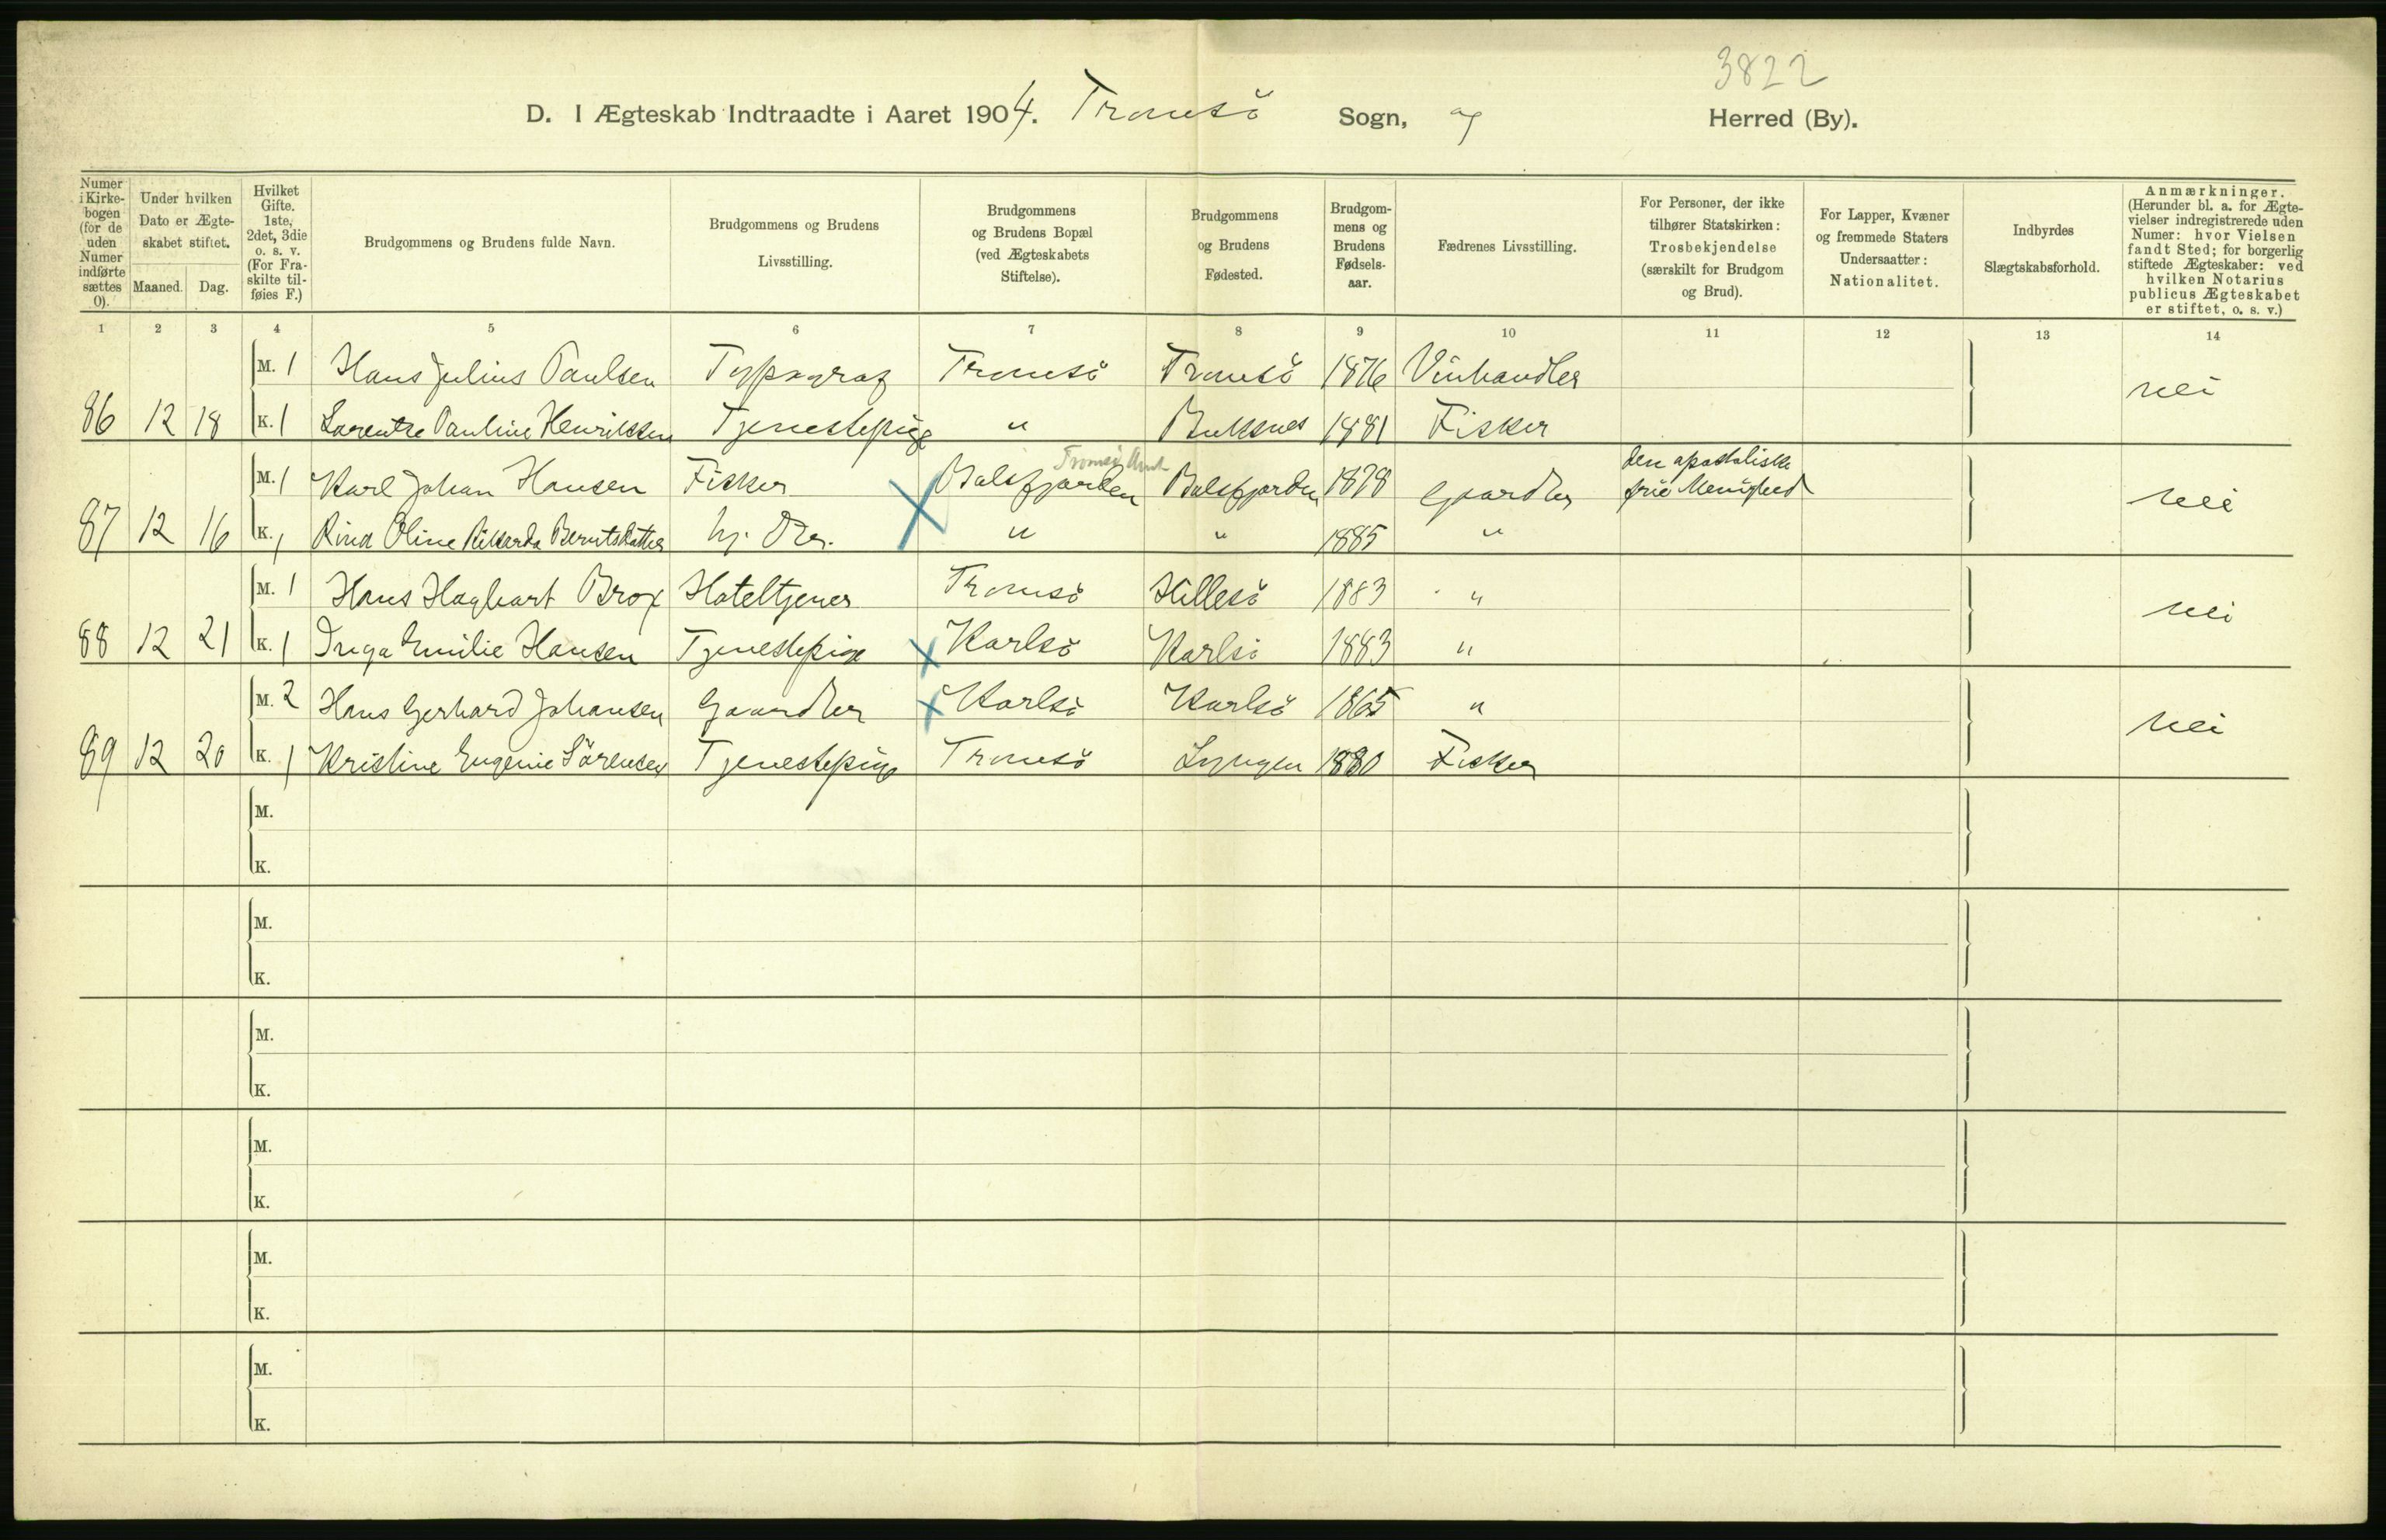 3822
D. I Ægteskab Indtraadte i Aaret 1904. Tromsö Sogn, og Herred (By).
Numer i Kirkebogen (for de uden Numer indførte sættes 0).
Under hvilken Dato er Ægteskabet stiftet.
Maaned. Dag.
Hvilket Gifte. 1ste, 2det, 3die o. s. v. (For Fraskilte tilføies F.)
Brudgommens og Brudens fulde Navn.
Brudgommens og Brudens Livsstilling.
Brudgommens og Brudens Bopæl (ved Ægteskabets Stiftelse).
Brudgommens og Brudens Fødested.
Brudgommens og Brudens Fødselsaar.
Fædrenes Livsstilling.
For Personer, der ikke tilhører Statskirken: Trosbekjendelse (særskilt for Brudgom og Brud).
For Lapper, Kvæner og fremmede Staters Undersaatter: Nationalitet.
Indbyrdes Slægtskabsforhold.
Anmærkninger. (Herunder bl. a. for Ægtevielser indregistrerede uden Numer: hvor Vielsen fandt Sted; for borgerlig stiftede Ægteskaber: ved hvilken Notarius publicus Ægteskabet er stiftet, o. s. v.)
1 2 3 4 5 6 7 8 9 10 11 12 13 14
M. 1 Hans Julius Paulsen Typograf Tromsö Tromsö 1876 Vinhandler nei
86 12 18 K. 1 Lorentze Pauline Henrikksen Tjenestepige " Buksnes 1881 Fisker
Tromsö Amt
M. 1 Karl Johan Hansen Fisker Balsfjorden Balsfjorden 1878 Gaardbr den apostoliske frie Menighed nei
87 12 16 K. 1 Rina Oline Rikarda Berntsdatter hj. Dtr. " " 1885 "
M. 1 Hans Hagbart Brox Hoteltjener Tromsö Hillesö 1883 " nei
88 12 21 K. 1 Inga Emilie Hansen Tjenestepige Karlsö Karlsö 1883 "
M. 2 Hans Gerhard Johansen Gaardbr Karlsö Karlsö 1865 " nei
89 12 20 K. 1 Kristine Eugenie Sörensen Tjenestepige Tromsö Lyngen 1880 Fisker
M.
K.
M.
K.
M.
K.
M.
K.
M.
K.
M.
K.